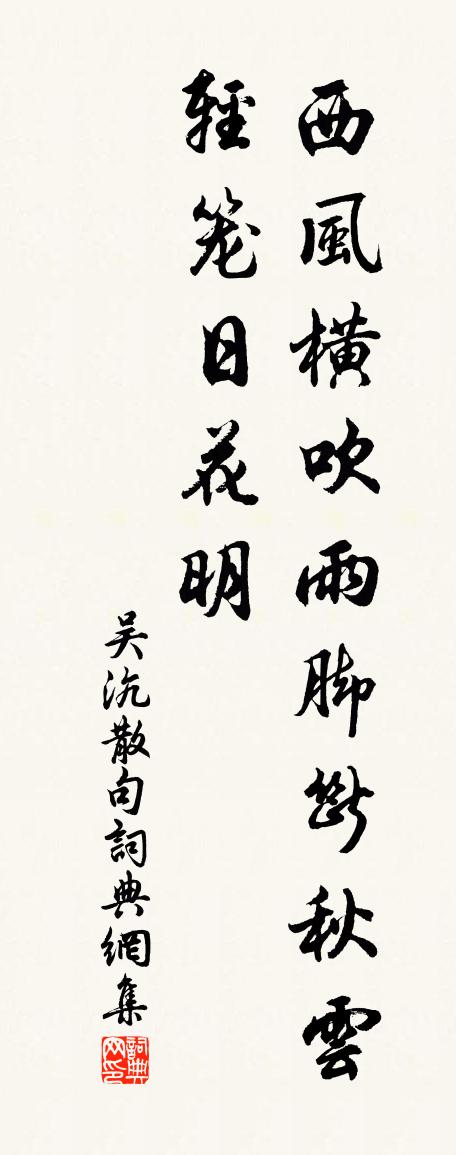 西風橫吹雨脚斷秋雲
輕笼日花明
吴沉散句詞典網集
詞典网印